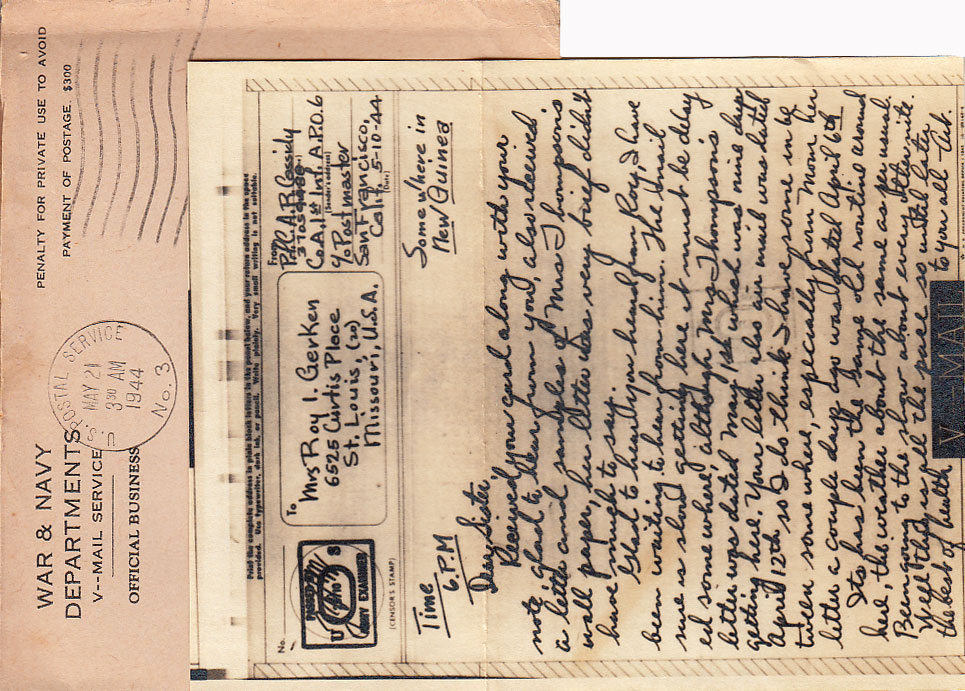 WAR & NAVY
DEPARTMENTS
V--MAIL SERVICE
OFFICIAL BUSINESS
PENALTY FOR PRIVATE USE TO AVOID
PAYMENT OF POSTAGE, $300
U.S. POSTAL SERVICE
MAY 21
3 30 AM
1944
No. 3
Print the complete address in plain block letters in the panel below, and your return address in the space
provided. Use typewriter, dark ink, or pencil. Write plainly. Very small writing is not suitable.
No.
(CENSOR'S STAMP)
To
Mrs Roy I. Gerken
6525 Curtis Place
St. Louis, (20)
Missouri, U.S.A.
From
Pfc. C.A.R. Cassidy
Co. A. 1st Inf. A.P.O. 6
(Sender's address)
c/o Postmaster
San Francisco,
Calif. 5-10-44
(Date)
Time
6. P.M
Somewhere in
New Guinea
Dear Sister,
Received your card along with your
note, glad to hear from you, also received
a letter and samples of Mrs Thompson's
wall paper, her letter was very brief didn't
have much to say.
Glad to hear you heard from Roy, I have
been waiting to hear from him. The V mail
sure is slow getting here it must be delay
ed somewhere, although Mrs. Thompson's
letter was dated May 1st which was nine days
getting here. Your letter also air mail was dated
April 12th so I do think I have some in be
tween some where, especially from Mom her
letter a couple days ago was dated April 6th
Its has been the same old routine around
here, the weather about the same as per usual.
Been going to the show about every other nite.
Well thats all the paper so until later
the best of health to you all
V--MAIL